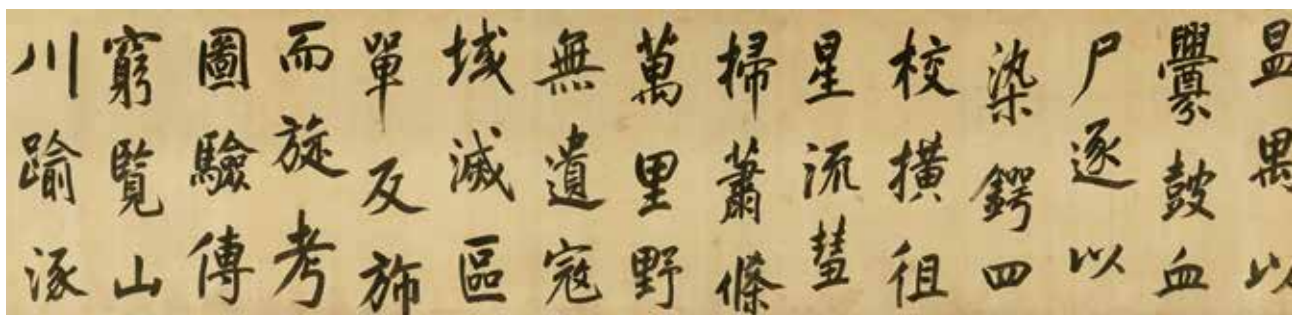 昷禺以
釁鼓血
尸逐以
染鍔四
校橫徂
星流彗
掃蕭條
萬里野
無遺寇
域滅區
單反旆
而旋考
圖驗傳
窮覽山
川踰涿